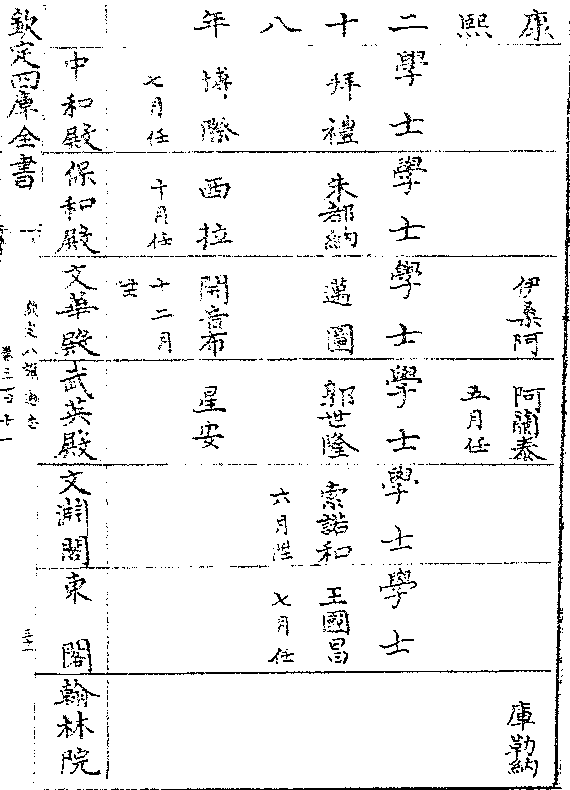 康熙二十八年
學士
拜禮
博際
七月任
中和殿
學士
朱都納
西拉
十月任
保和殿
伊桑阿
學士
邁圖
開音布
十二月
陞
文華殿
阿蘭泰
五月任
學士
郭世隆
星安
武英殿
學士
索諾和
六月陞
文淵閣
學士
王國昌
七月任
東閣
庫勒納
翰林院
欽定四庫全書
欽定八旗通志
卷三百十一